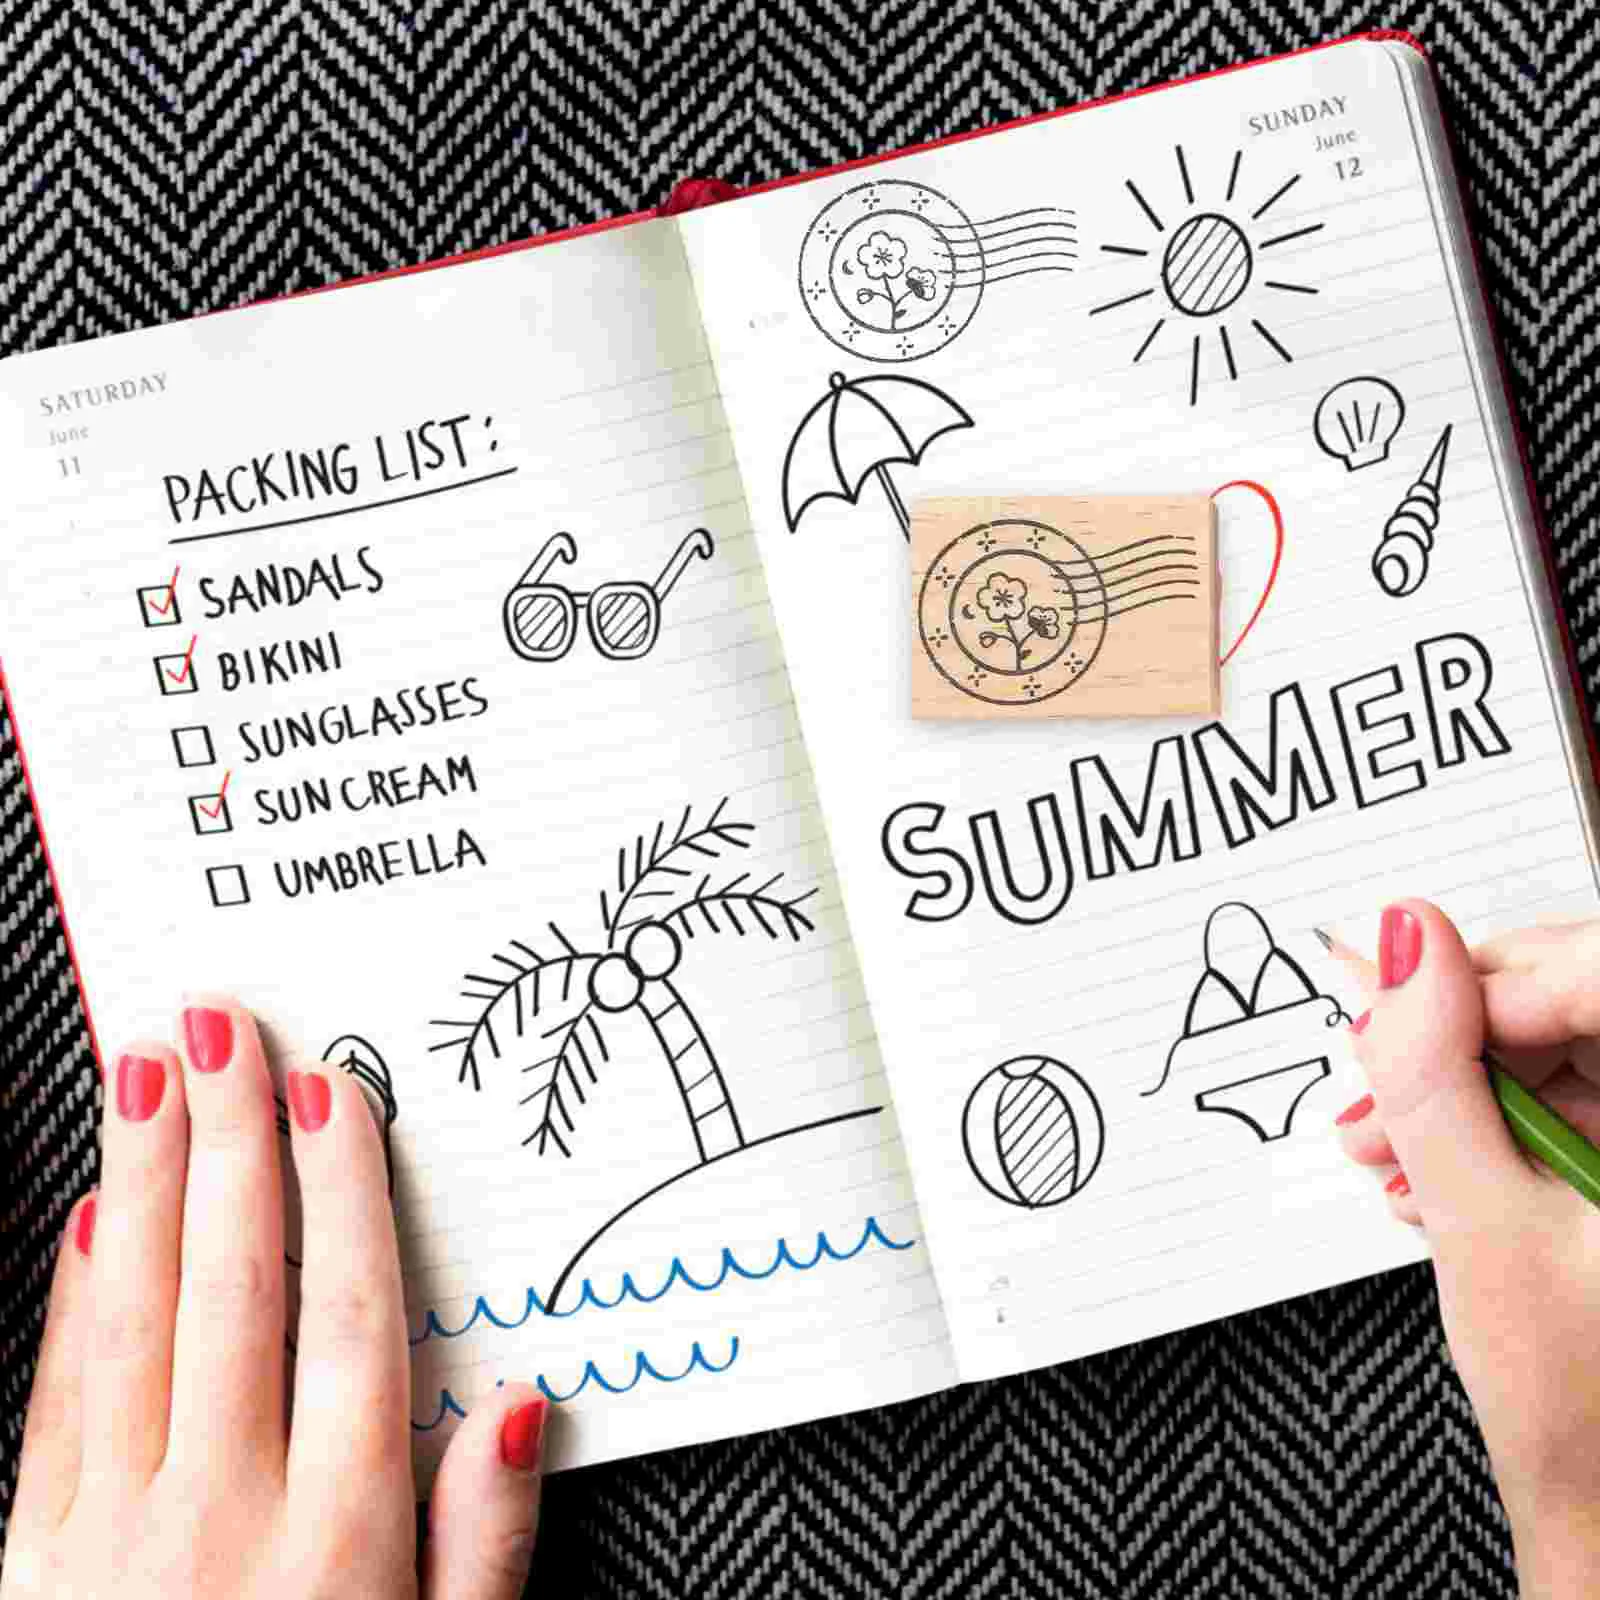 SATURDAY
June
11
PACKING LIST:
SANDALS
BIKINI
SUNGLASSES
SUN CREAM
UMBRELLA
SUNDAY
June
12
SUMMER